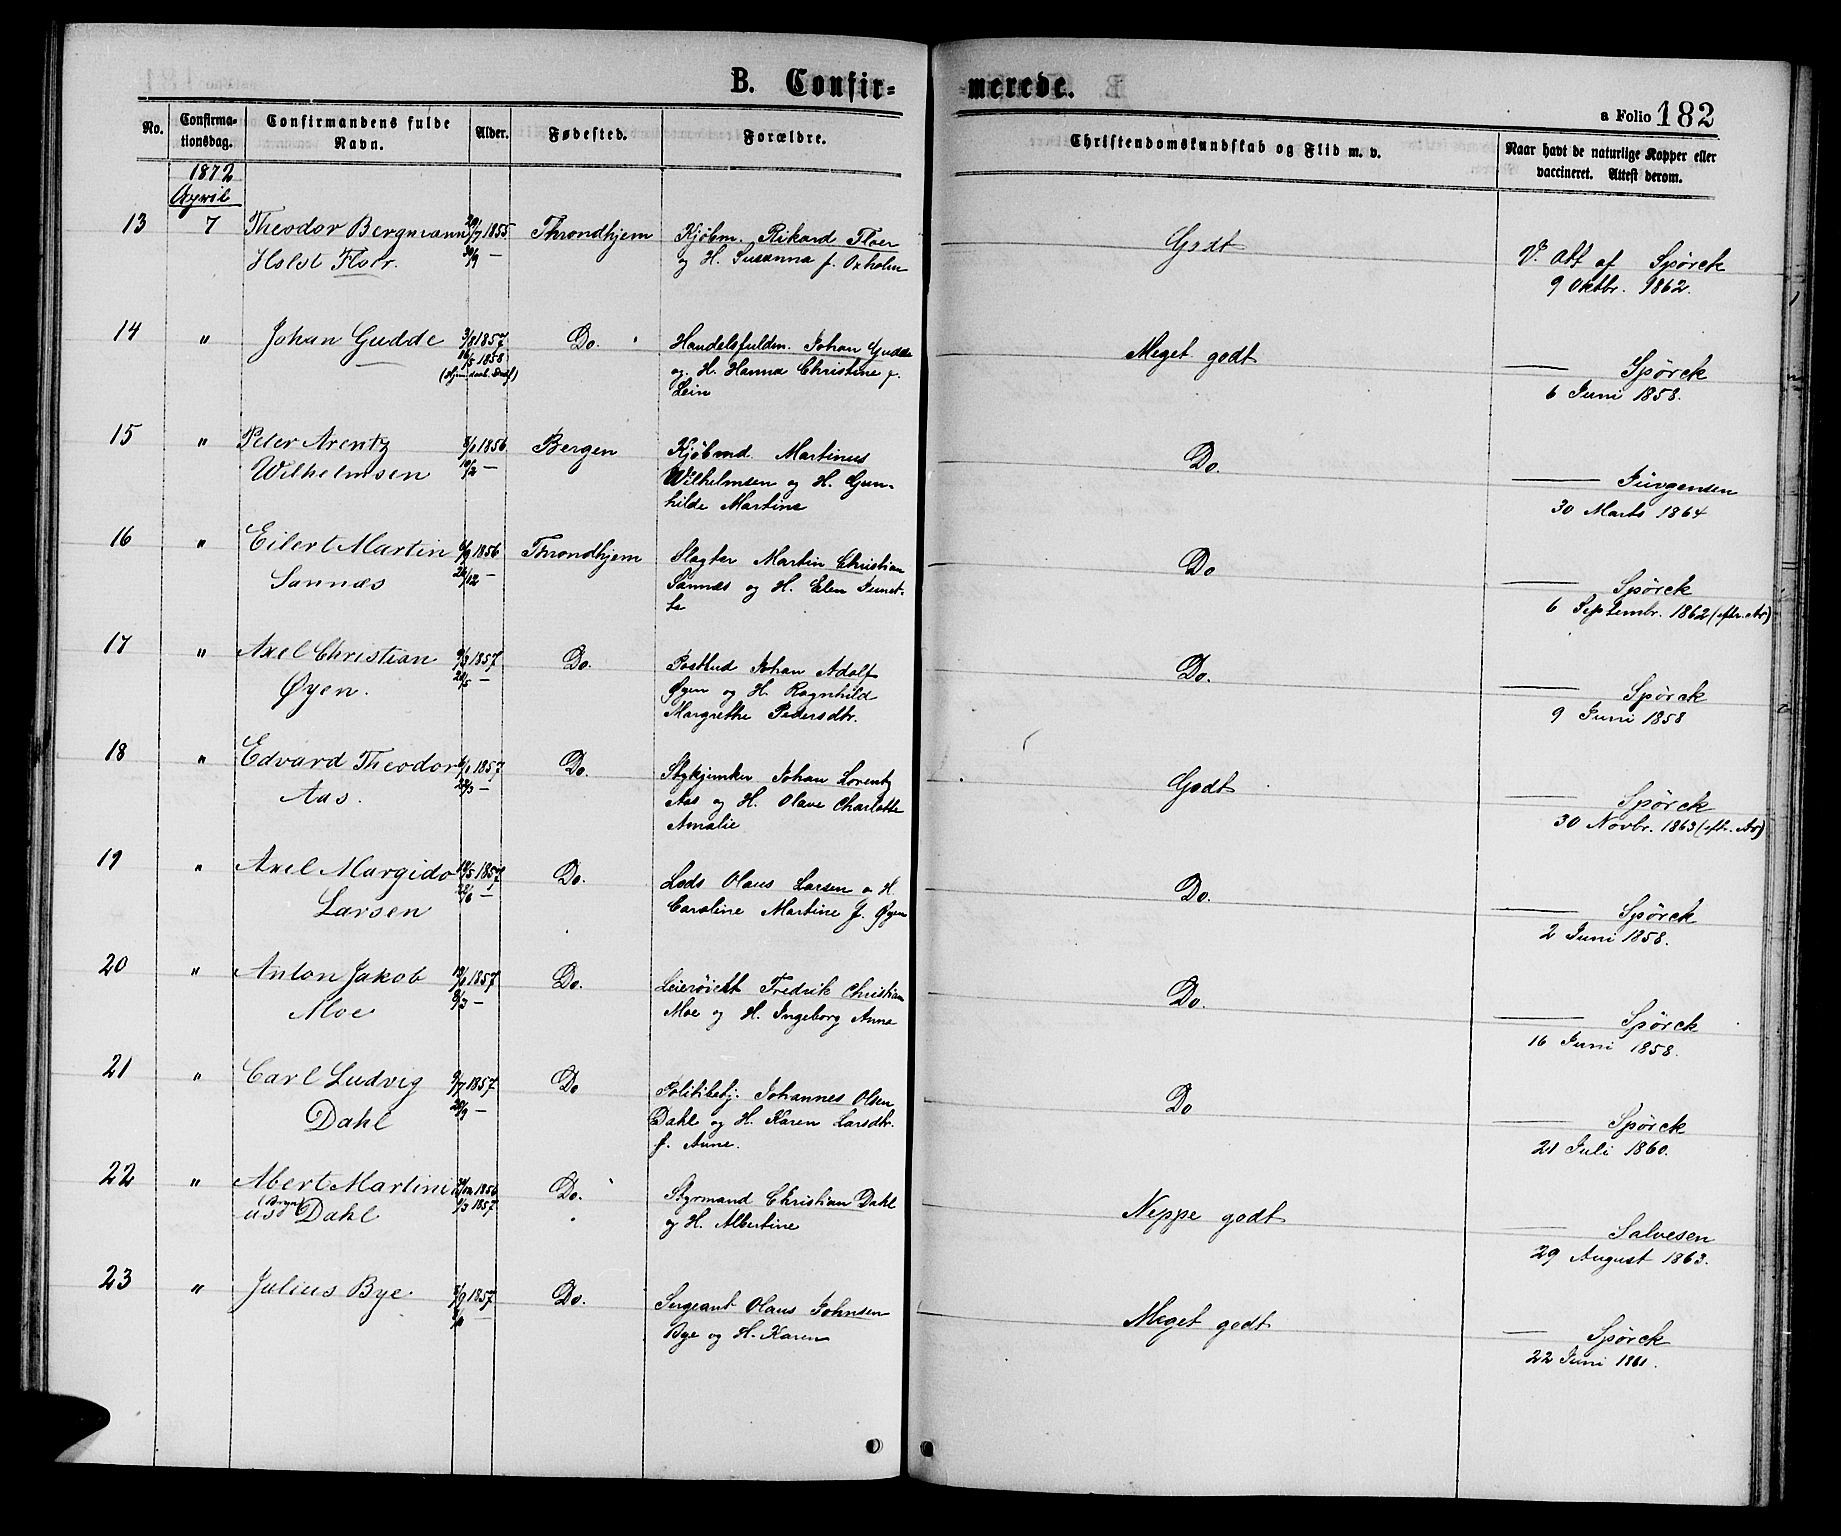 B. Confir-
merede.
a Folio 182
No.
Confirma-
tionsdag.
Confirmandens fulde
Navn.
Alder.
Fødested.
Forældre.
Christendomskundskab og Flid m. v.
Naar havt de naturlige Kopper eller
vaccineret. Attest derom.
1872
April
13 7 Theodor Bergmann 29/7 1855 Throndhjem Kjøbm. Rikard Floer Godt V. Att af Spørck
Holst Floer. 30/9 — og H. Susanna f. Oxholm 9 Oktbr. 1862.
14 " Johan Gudde 3/8 1857 Do. Handelsfuldm. Johan Gudde Meget godt — Spørck
16/5 1858 og H. Hanna Christine f. 6 Juni 1858.
(Hjem. døb.)
Lein
15 " Peter Arentz 8/1 1856 Bergen Kjøbmd Martinus Do. — Jürgensen
Wilhelmsen 10/2 — Wilhelmsen og H. Gun- 30 Marts 1864
hilde Martine
16 " Eilert Martin 6/9 1856 Throndhjem Slagter Martin Christian Do — Spørck
Sannæs 26/12 — Sannæs og H. Elen 6 Septembr. 1862 (eftr. Ar)
17 " Axel Christian 9/3 1857 Do. Postbud Johan Adolf Do. — Spørck
Øyen. 24/5 — Øyen og H. Ragnhild 9 Juni 1858
Margrethe Pedersdtr.
18 " Edvard Theodor 6/1 1857 Do. Stykjunker Johan Lorentz Godt — Spørck
Aas. 22/3 — Aas og H. Olave Charlotte 30 Novbr. 1863 (eftr. Ar)
Amalie
19 " Axel Margido 18/5 1857 Do. Lods Olaus Larsen o H. Do. — Spørck
Larsen 28/6 — Caroline Martine f. Øyen 2 Juni 1858.
20 " Anton Jakob 19/1 1857 Do. Fredrik Christian Do. — Spørck
Moe 8/3 — Moe og H. Ingeborg Anna 16 Juni 1858.
21 " Carl Ludvig 9/7 1857 Do Politibetj. Johannes Olsen Do — Spørck
Dahl 20/9 — Dahl og H. Karen Larsdtr. 21 Juli 1860.
f. Aune.
22 " Abert Martini 1856 Do. Styrmand Christian Dahl Neppe godt — Salvesen
us Dahl 1/3 1857 og H. Albertine 29 August 1863.
23 " Julius Bye 1857 Do. Sergeant Olaus Johnsen Meget godt — Spørck
Bye og H. Karen 22 Juni 1861.